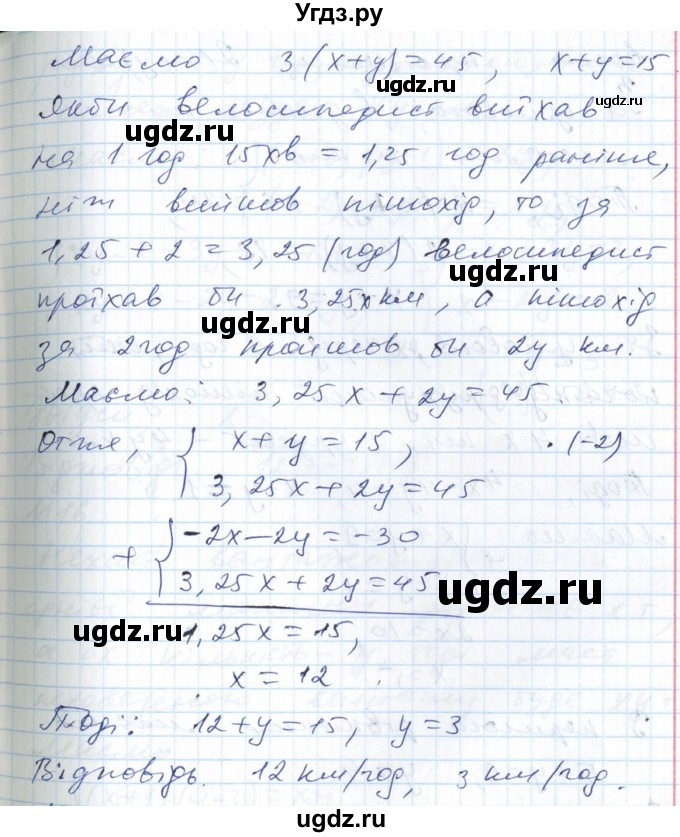 Угдз.ру
Маємо 3(x+y)=45, x+y=15
ugdz.ru
Якби велосипедист виїхав
ugdz.ru
ugdz.ru
на 1 год 15хв = 1,25 год раніше,
ніж вийшов пішохід, то за
1,25 + 2 = 3,25 (год) велосипедист
ugdz.ru
проїхав би 3,25x км, а пішохід
ugdz.ru
за 2 год пройшов би 2y км.
Маємо: 3,25x + 2y = 45.
Отже, { x + y = 15, · (-2)
3,25x + 2y = 45
+ { -2x - 2y = -30
3,25x + 2y = 45
ugdz.ru
ugdz.ru
1,25x = 15,
x = 12
Тоді: 12 + y = 15, y = 3
Відповідь. 12 км/год, 3 км/год.
ugdz.ru